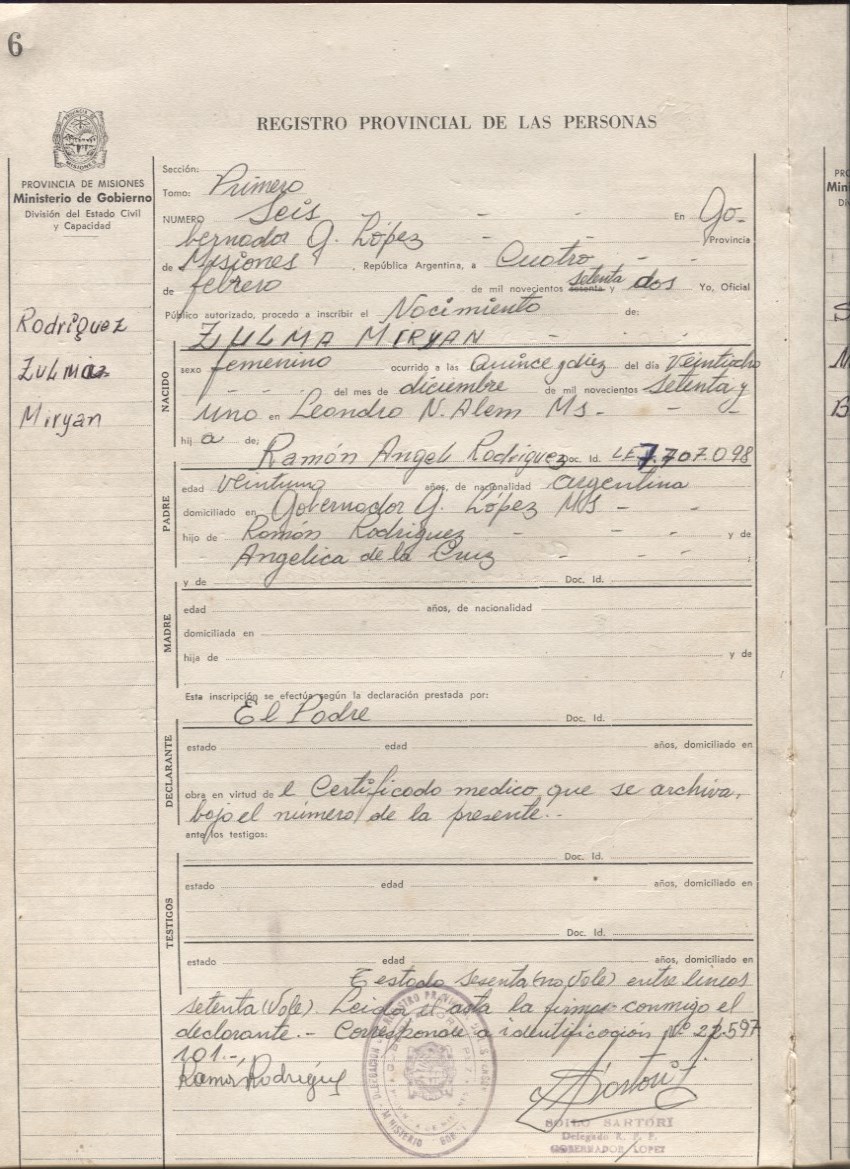 6
REGISTRO PROVINCIAL DE LAS PERSONAS
PROVINCIA DE MISIONES
Ministerio de Gobierno
División del Estado Civil
y Capacidad
Rodriguez
Zulma
Miryan
Sección:
Tomo: Primero
NUMERO Seis - - - En Go-
bernador G. López - - Provincia
de Misiones, República Argentina, a Cuatro - -
de febrero de mil novecientos sesenta setenta y dos Yo, Oficial
Público autorizado, procedo a inscribir el Nacimiento de:
ZULMA MIRYAN - - -
NACIDO
sexo femenino ocurrido a las Quince y diez del día Veintidro
- - - del mes de diciembre de mil novecientos Setenta y
uno en Leandro N. Alem Ms- - -
hij a de:
PADRE
Ramón Angel Rodriguez Doc. Id. LE 7.707.098
edad Veintiuno años, de nacionalidad argentina
domiciliado en Gobernador G. López MS - -
hijo de Ramón Rodriguez - - - y de
Angelica de la Cruz - - - ;
MADRE
y de Doc. Id.
edad años, de nacionalidad
domiciliada en
hija de y de
Esta inscripción se efectúa según la declaración prestada por:
DECLARANTE
El Padre Doc. Id.
estado edad años, domiciliado en
obra en virtud de l Certificado medico que se archiva,
bajo el número de la presente.-
ante los testigos:
TESTIGOS
Doc. Id.
estado edad años, domiciliado en
Doc. Id.
estado edad años, domiciliado en
Testado sesenta (no Vale) entre lineas
setenta (Vale). Leida el acta la firma conmigo el
declarante.- Corresponde a identificación Nº 22.597
101.-,
Ramón Rodríguez
SOILO SARTORI
Delegado R. P. P.
GOBERNADOR LOPEZ